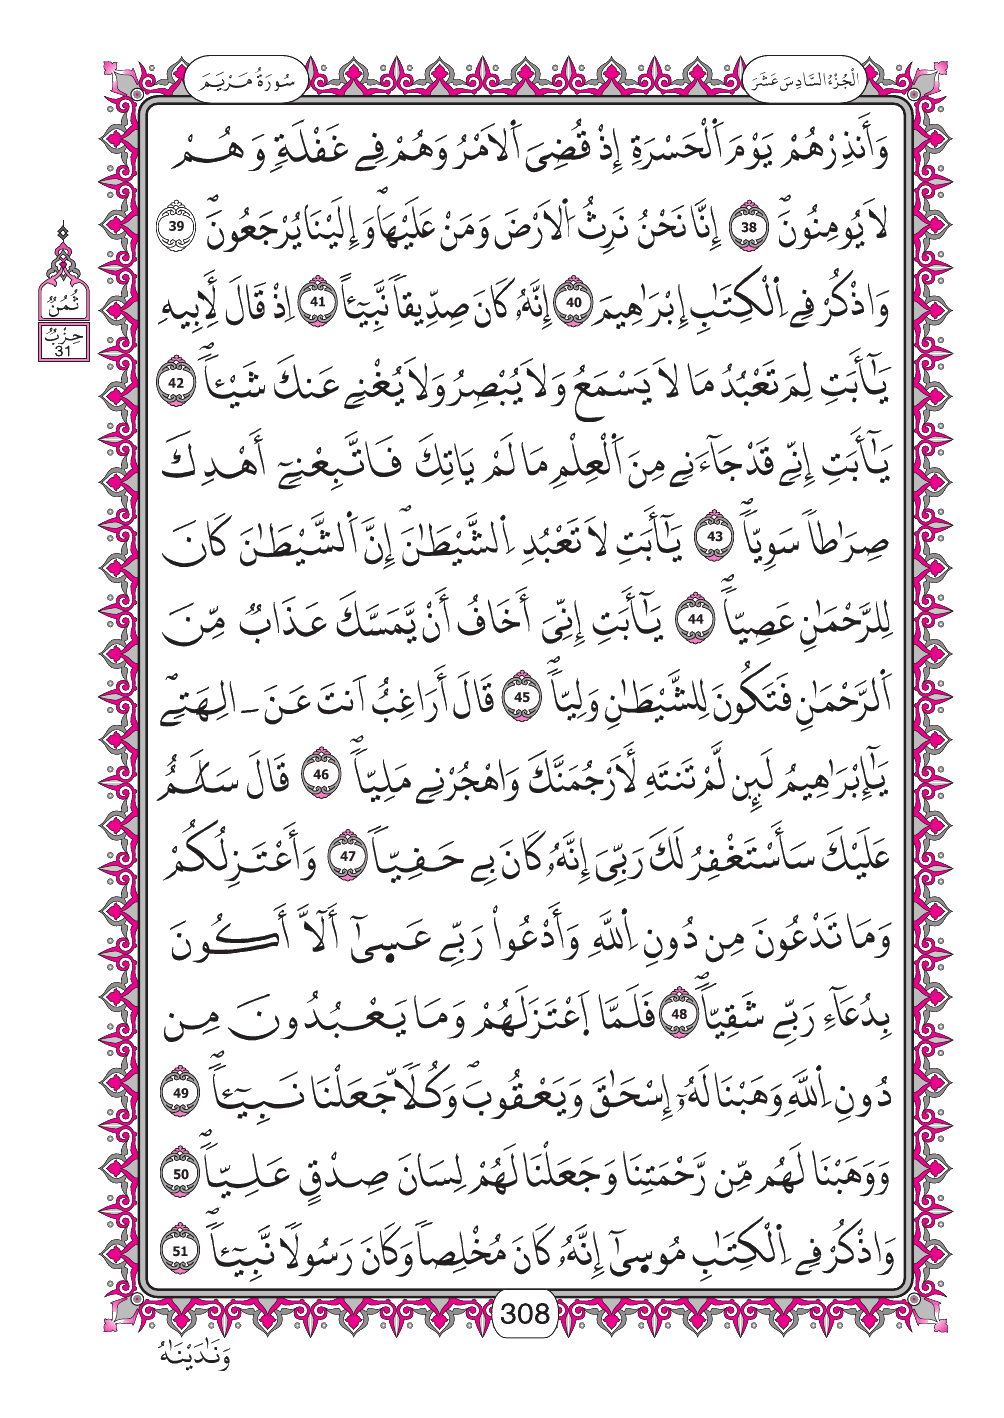 سُورَةُ مَرْيَمَ
الْجُزْءُ السَّادِسَ عَشَرَ
وَأَنذِرْهُمْ يَوْمَ اَ۬لْحَسْرَةِ إِذْ قُضِيَ اَ۬لَامْرُ وَهُمْ فِے غَفْلَةٖ وَهُمْ
لَا يُومِنُونَۖ 38 إِنَّا نَحْنُ نَرِثُ اُ۬لَارْضَ وَمَنْ عَلَيْهَاۖ وَإِلَيْنَا يُرْجَعُونَۖ 39
ثُمُنٌ
حِزْبٌ
31
وَاذْكُرْ فِے اِ۬لْكِتَٰبِ إِبْرَٰهِيمَ 40 إِنَّهُۥ كَانَ صِدِّيقاٗ نَّبِيٓـٔاً 41 اِذْ قَالَ لِأَبِيهِ
يَٰٓأَبَتِ لِمَ تَعْبُدُ مَا لَا يَسْمَعُ وَلَا يُبْصِرُ وَلَا يُغْنِے عَنكَ شَيْـٔاٗۖ 42
يَٰٓأَبَتِ إِنِّے قَدْ جَآءَنِے مِنَ اَ۬لْعِلْمِ مَا لَمْ يَاتِكَ فَاتَّبِعْنِےٓ أَهْدِكَ
صِرَٰطاٗ سَوِيّاٗۖ 43 يَٰٓأَبَتِ لَا تَعْبُدِ اِ۬لشَّيْطَٰنَۖ إِنَّ اَ۬لشَّيْطَٰنَ كَانَ
لِلرَّحْمَٰنِ عَصِيّاٗۖ 44 يَٰٓأَبَتِ إِنِّيَ أَخَافُ أَنْ يَّمَسَّكَ عَذَابٞ مِّنَ
اَ۬لرَّحْمَٰنِ فَتَكُونَ لِلشَّيْطَٰنِ وَلِيّاٗۖ 45 قَالَ أَرَاغِبٌ اَنتَ عَنَ ـ اٰلِهَتِےۖ
يَٰٓإِبْرَٰهِيمُ لَئِن لَّمْ تَنتَهِ لَأَرْجُمَنَّكَ وَاهْجُرْنِے مَلِيّاٗۖ 46 قَالَ سَلَٰمٌ
عَلَيْكَ سَأَسْتَغْفِرُ لَكَ رَبِّيَ إِنَّهُۥ كَانَ بِے حَفِيّاٗۖ 47 وَأَعْتَزِلُكُمْ
وَمَا تَدْعُونَ مِن دُونِ اِ۬للَّهِ وَأَدْعُواْ رَبِّے عَسِيٰٓ أَلَّآ أَكُونَ
بِدُعَآءِ رَبِّے شَقِيّاٗۖ 48 فَلَمَّا اَ۪عْتَزَلَهُمْ وَمَا يَعْبُدُونَ مِن
دُونِ اِ۬للَّهِ وَهَبْنَا لَهُۥٓ إِسْحَٰقَ وَيَعْقُوبَۖ وَكُلّاٗ جَعَلْنَا نَبِيٓـٔاٗۖ 49
وَوَهَبْنَا لَهُم مِّن رَّحْمَتِنَا وَجَعَلْنَا لَهُمْ لِسَانَ صِدْقٍ عَلِيّاٗۖ 50
وَاذْكُرْ فِے اِ۬لْكِتَٰبِ مُوسِيٰٓ إِنَّهُۥ كَانَ مُخْلِصاٗ وَكَانَ رَسُولاٗ نَّبِيٓـٔاٗۖ 51
308
وَنَٰدَيْنَٰهُ